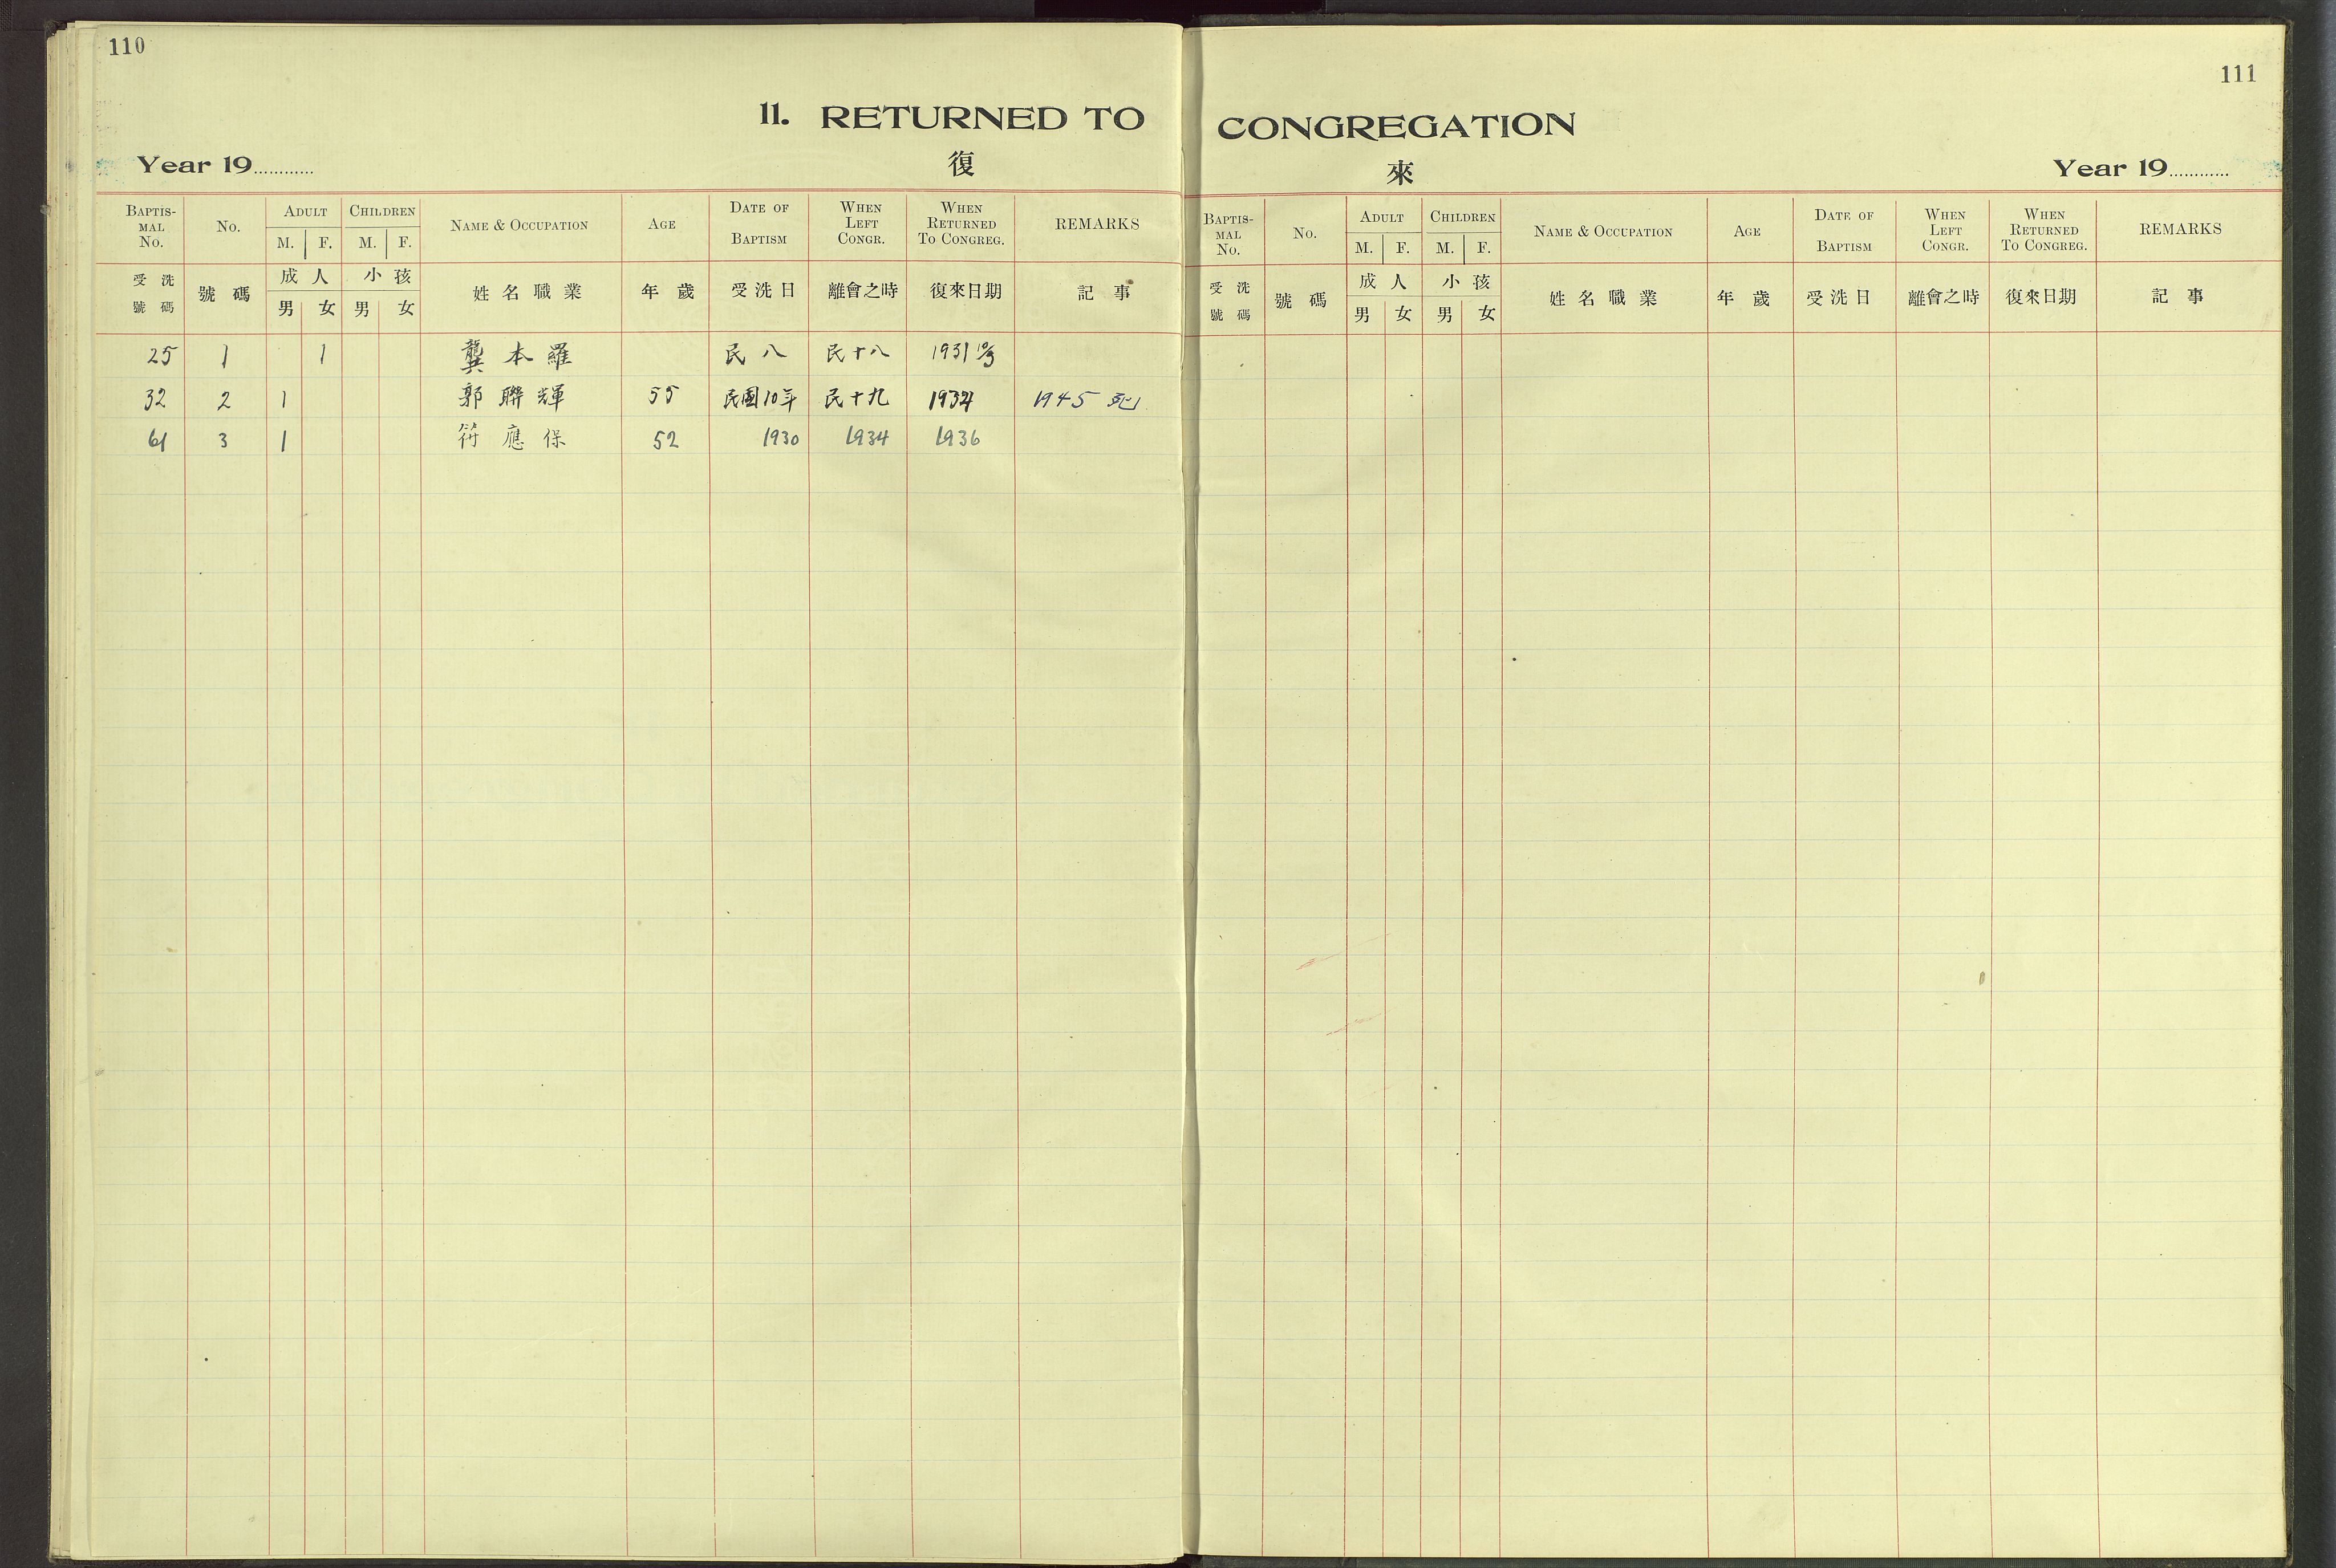 110
11. RETURNED TO
復
Year 19............
BAPTISMAL No. No. ADULT M. F. CHILDREN M. F. NAME & OCCUPATION AGE DATE OF BAPTISM WHEN LEFT CONGR. WHEN RETURNED TO CONGREG. REMARKS
受洗號碼 號碼 成人 男 女 小孩 男 女 姓名職業 年歲 受洗日 離會之時 復來日期 記事
25 1 1 龔本羅 民八 民十八 1931
32 2 1 郭聯輝 55 民國10年 民十九 1934 1945 死
61 3 1 符應保 52 1930 1934 1936
111
CONGREGATION
來
Year 19............
BAPTISMAL No. No. ADULT M. F. CHILDREN M. F. NAME & OCCUPATION AGE DATE OF BAPTISM WHEN LEFT CONGR. WHEN RETURNED TO CONGREG. REMARKS
受洗號碼 號碼 成人 男 女 小孩 男 女 姓名職業 年歲 受洗日 離會之時 復來日期 記事